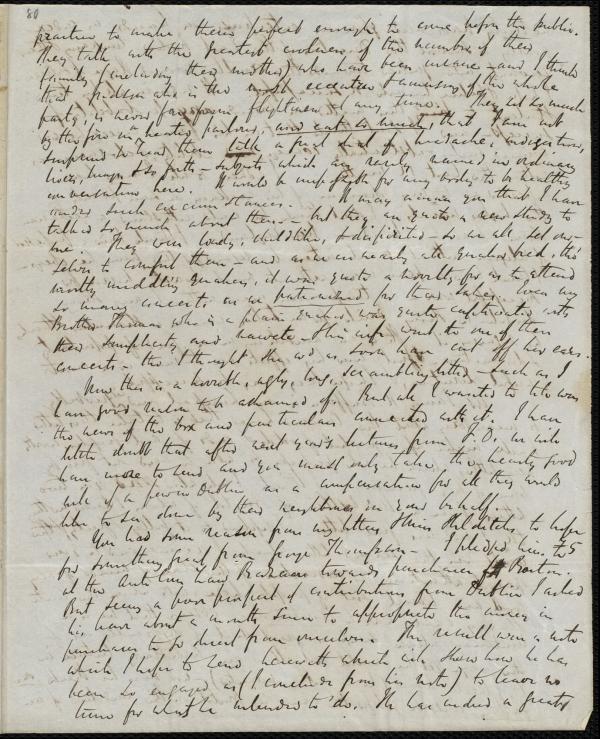 80
practice to make them perfect enough to come before the public.
They talk with the greatest coolness of the number of their
family (including their mother) who have been insane - and I think
that Judson who is the most eccentric & amusing of the whole
party, is never far from flightiness at any time. They sit so much
by the fire in heated parlours, and eat so much, that I am not
surprised to hear them talk a great deal of headache, indigestion,
liver, lungs & so forth - subjects which are rarely named in ordinary
conversation here. It would be impossible for any body to be healthy
under such circumstances. It may amuse you that I have
talked so much about them - but they are quite a new study to
me. They were lonely, childlike, & dispirited - so we all set our-
selves to comfort them - and as we are nearly all quaker bred, tho'
mostly middling quakers, it was quite a novelty for us to attend
so many concerts as we patronized for their sakes. Even my
brother Thomas who is a plain quaker was quite captivated with
their simplicity and naivete - & his wife went to one of their
concerts - tho' I thought she wd as soon have cut off her ears.
Now this is a horrible, ugly, long, scrambling letter - such as I
have good reason to be ashamed of. But all I wanted to tell was
the news of the box and particulars connected with it. I have
little doubt that after next year's lectures from F.D. we will
have more to send and you must only take the hearty good
will of a few in Dublin as a compensation for all they would
like to see done by their neighbours on your behalf.
You had some reason from my letters thro' Hilditch, to hope
for something good from George Thompson - I pledged him to £5
at the Anti Corn Law Bazaar towards purchases for Boston.
But seeing a poor prospect of contributions from Dublin I asked
him about a month since to appropriate the money in
purchases to go direct from ourselves. The result was a note
which I hope to send herewith which will show how he has
been so engaged as (I conclude from his note) to leave no
time for what he intended to do. He has indeed a great